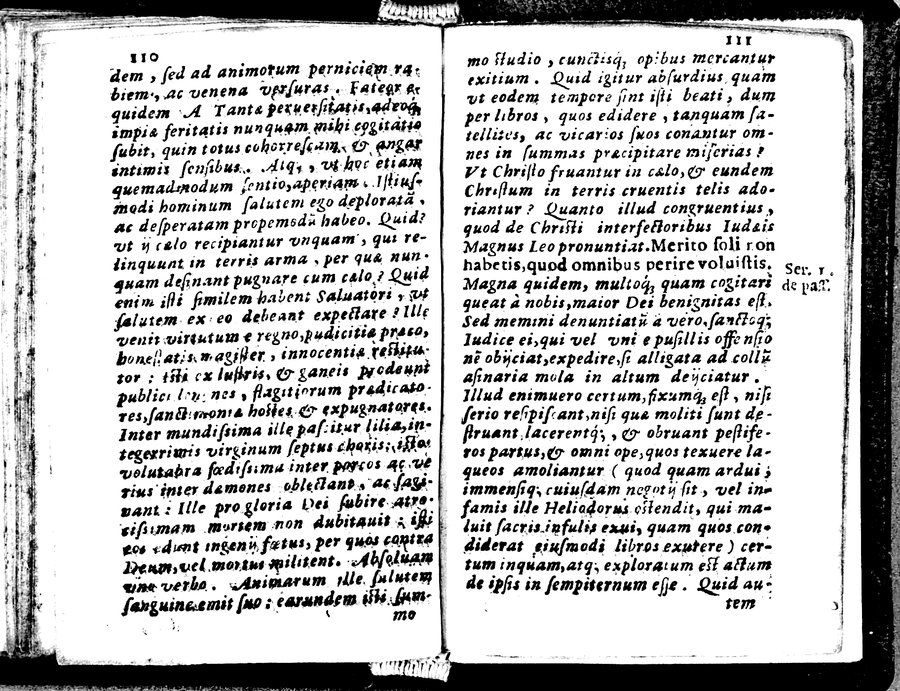 110
dem, ſed ad animorum perniciem ra-
biem, ac venena verſuras. Fateor e-
quidem A Tanta peruerſitatis, adeoq́;
impia feritatis nunquam mihi cogitatio
ſubit, quin totus cohorreſcam, & angar
intimis ſenſibus. Atq;, vt hoc etiam
quemadmodum ſentio, aperiam. Iſtiuſ-
modi hominum ſalutem ego deploratā,
ac deſperatam propemodū habeo. Quid?
vt ij cælo recipiantur vnquam, qui re-
linquunt in terris arma, per quæ nun-
quam deſinant pugnare cum cælo? Quid
enim iſti ſimilem habent Saluatori, vt
ſalutem ex eo debeant expectare? Ille
venit virtutum e regno, pudicitiæ præco,
honeſtatis magiſter, innocentiæ reſtitu-
tor: iſti ex luſtris, & ganeis prodeunt
publici lenones, flagitiorum prædicato-
res, ſanctimoniæ hoſtes & expugnatores.
Inter mundiſſima ille paſcitur lilia, in-
tegerrimis virginum ſeptus choris: iſtos
volutabra fœdiſſima inter porcos ac ve
rius inter dæmones oblectant, ac ſagi-
nant: Ille pro gloria Dei ſubire atro-
ciſſimam mortem non dubitauit: iſti
eos edunt ingenij fœtus, per quos contra
Deum, vel mortui militent. Abſoluam
vno verbo. Animarum ille ſalutem
ſanguine emit ſuo: earundem iſti ſum-
mo
111
mo ſtudio, cunctiſq; opibus mercantur
exitium. Quid igitur abſurdius, quam
vt eodem tempore ſint iſti beati, dum
per libros, quos edidere, tanquam ſa-
tellites, ac vicarios ſuos conantur om-
nes in ſummas præcipitare miſerias?
Vt Chriſto fruantur in cælo, & eundem
Chriſtum in terris cruentis telis ado-
riantur? Quanto illud congruentius,
quod de Chriſti interfectoribus Iudæis
Magnus Leo pronuntiat. Merito ſoli non
habetis, quod omnibus perire voluiſtis.
Ser. 1.
de paſſ.
Magna quidem, multoq; quam cogitari
queat à nobis, maior Dei benignitas eſt.
Sed memini denuntiatū à vero, ſanctoq;
Iudice ei, qui vel vni e puſillis offenſio
nē obijciat, expedire, ſi alligata ad collū
aſinaria mola in altum deijciatur.
Illud enimuero certum, fixumq; eſt, niſi
ſerio reſipiſcant, niſi quæ moliti ſunt de-
ſtruant, lacerentq;, & obruant peſtife-
ros partus, & omni ope, quos texuere la-
queos amoliantur (quod quam ardui,
immenſiq; cuiuſdam negotij ſit, vel in-
famis ille Heliodorus oſtendit, qui ma-
luit ſacris infulis exui, quam quos con-
diderat eiuſmodi libros exurere) cer-
tum inquam, atq; exploratum eſt actum
de ipſis in ſempiternum eſſe. Quid au-
tem